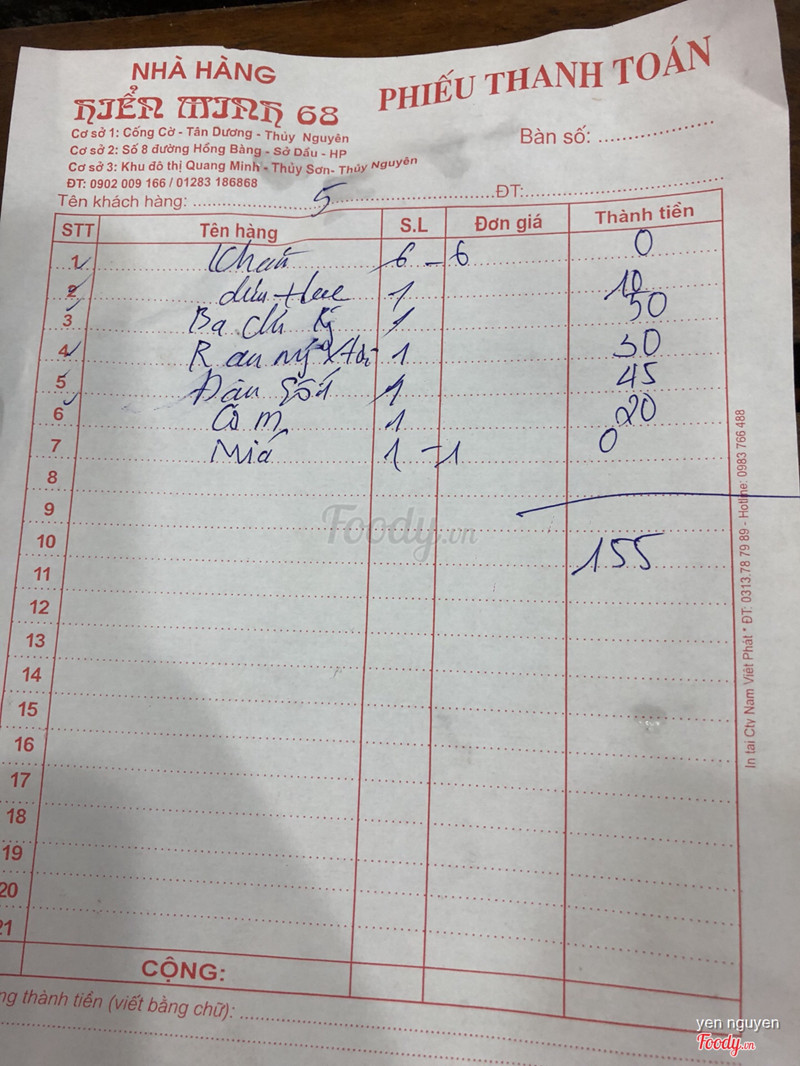 NHÀ HÀNG
HIỂN MINH 68
PHIẾU THANH TOÁN
Cơ sở 1: Cống Cờ - Tân Dương - Thủy Nguyên
Bàn số:
Cơ sở 2: Số 8 đường Hồng Bàng - Sở Dầu - HP
Cơ sở 3: Khu đô thị Quang Minh - Thủy Sơn- Thủy Nguyên
ĐT: 0902 009 166 / 01283 186868
Tên khách hàng: 5 ĐT:
STT Tên hàng S.L Đơn giá Thành tiền
1 Khăn 6 - 6 0
2 1 10
3 Ba chỉ 1 50
4 Rau 1 30
5 Đậu sốt 1 45
6 Cơm 1 20
7 Miá 1 - 1 0
8
9
10
155
11
12
13
14
15
16
17
18
19
20
21
CỘNG:
ng thành tiền (viết bằng chữ):
In tại Cty Nam Việt Phát * ĐT: 0313.78 79 89 - Hotline: 0983 766 488
Foody.vn
yen nguyen
Foody.vn